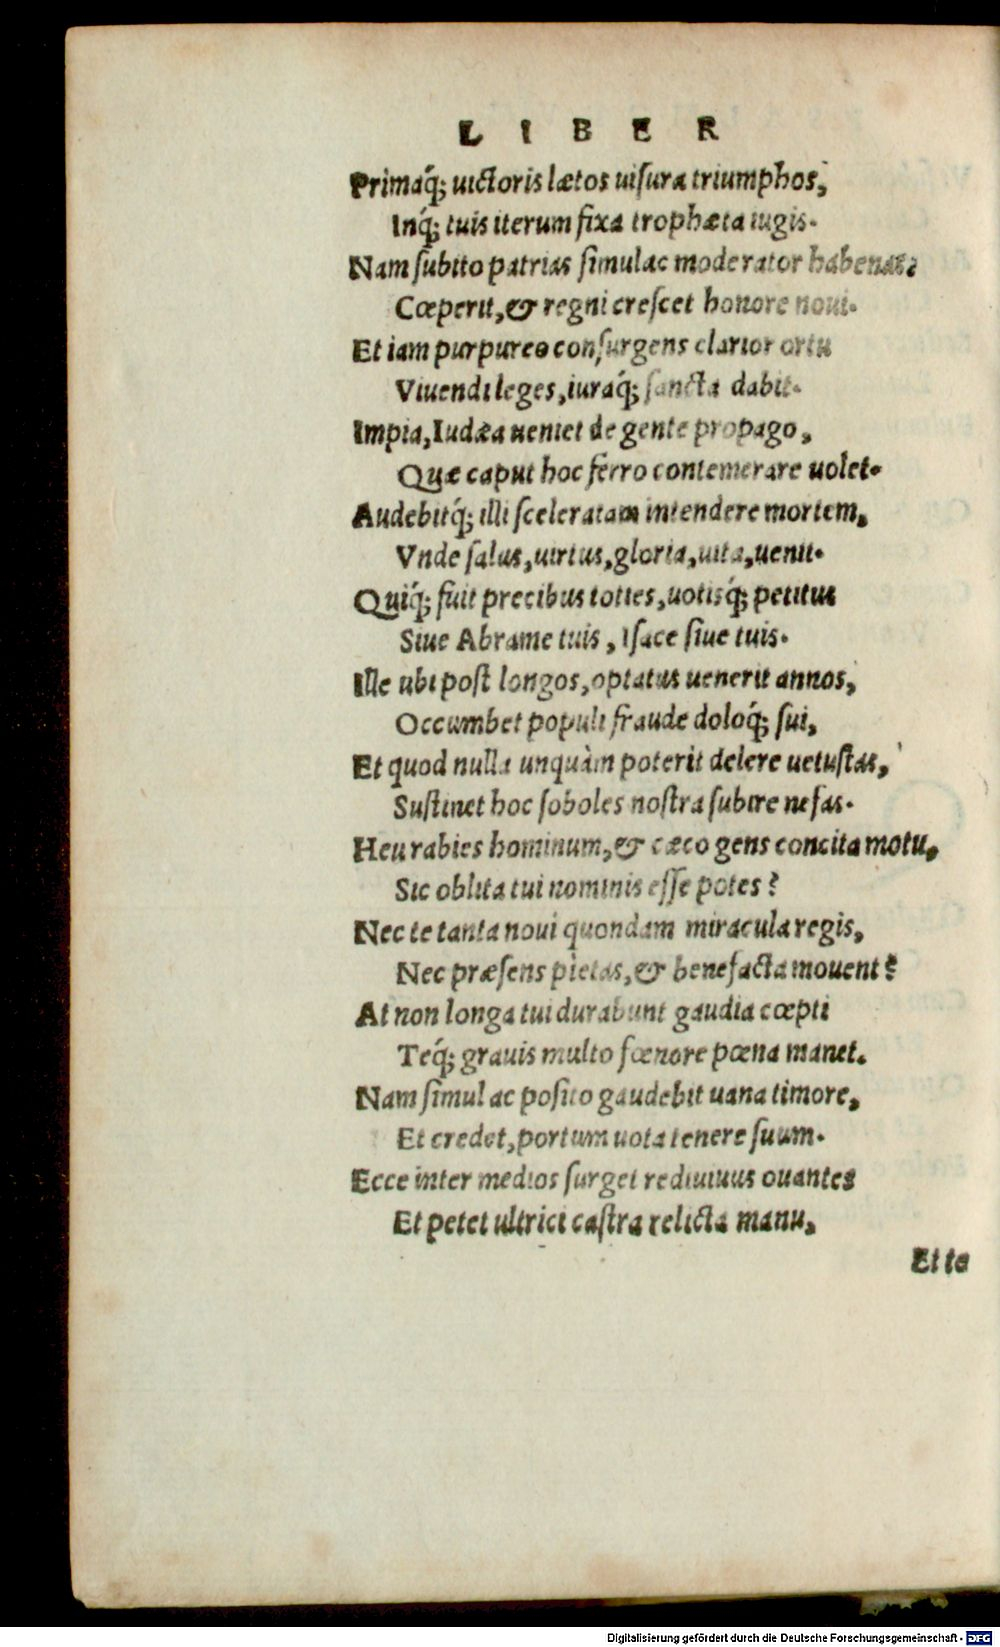 LIBER
Primaq́; uictoris lætos uisura triumphos,
Inq́; tuis iterum fixa trophæta iugis.
Nam subito patrias simulac moderator habenas
Cœperit, & regni crescet honore noui.
Et iam purpureo consurgens clarior ortu
Viuendi leges, iuraq́; sancta dabit.
Impia, Iudæa ueniet de gente propago,
Quæ caput hoc ferro contemerare uolet.
Audebitq́; illi sceleratam intendere mortem,
Vnde salus, uirtus, gloria, uita, uenit.
Quiq́; fuit precibus toties, uotisq́; petitus
Siue Abrame tuis, Isace siue tuis.
Ille ubi post longos, optatus uenerit annos,
Occumbet populi fraude doloq́; sui,
Et quod nulla unquàm poterit delere uetustas,
Sustinet hoc soboles nostra subire nefas.
Heu rabies hominum, & cæco gens concita motu,
Sic oblita tui nominis esse potes?
Nec te tanta noui quondam miracula regis,
Nec præsens pietas, & benefacta mouent?
At non longa tui durabunt gaudia cœpti
Teq́; grauis multo fœnore pœna manet.
Nam simul ac posito gaudebit uana timore,
Et credet, portum uota tenere suum.
Ecce inter medios surget rediuiuus ouantes
Et petet ultrici castra relicta manu,
Et te
Digitalisierung gefördert durch die Deutsche Forschungsgemeinschaft - DFG